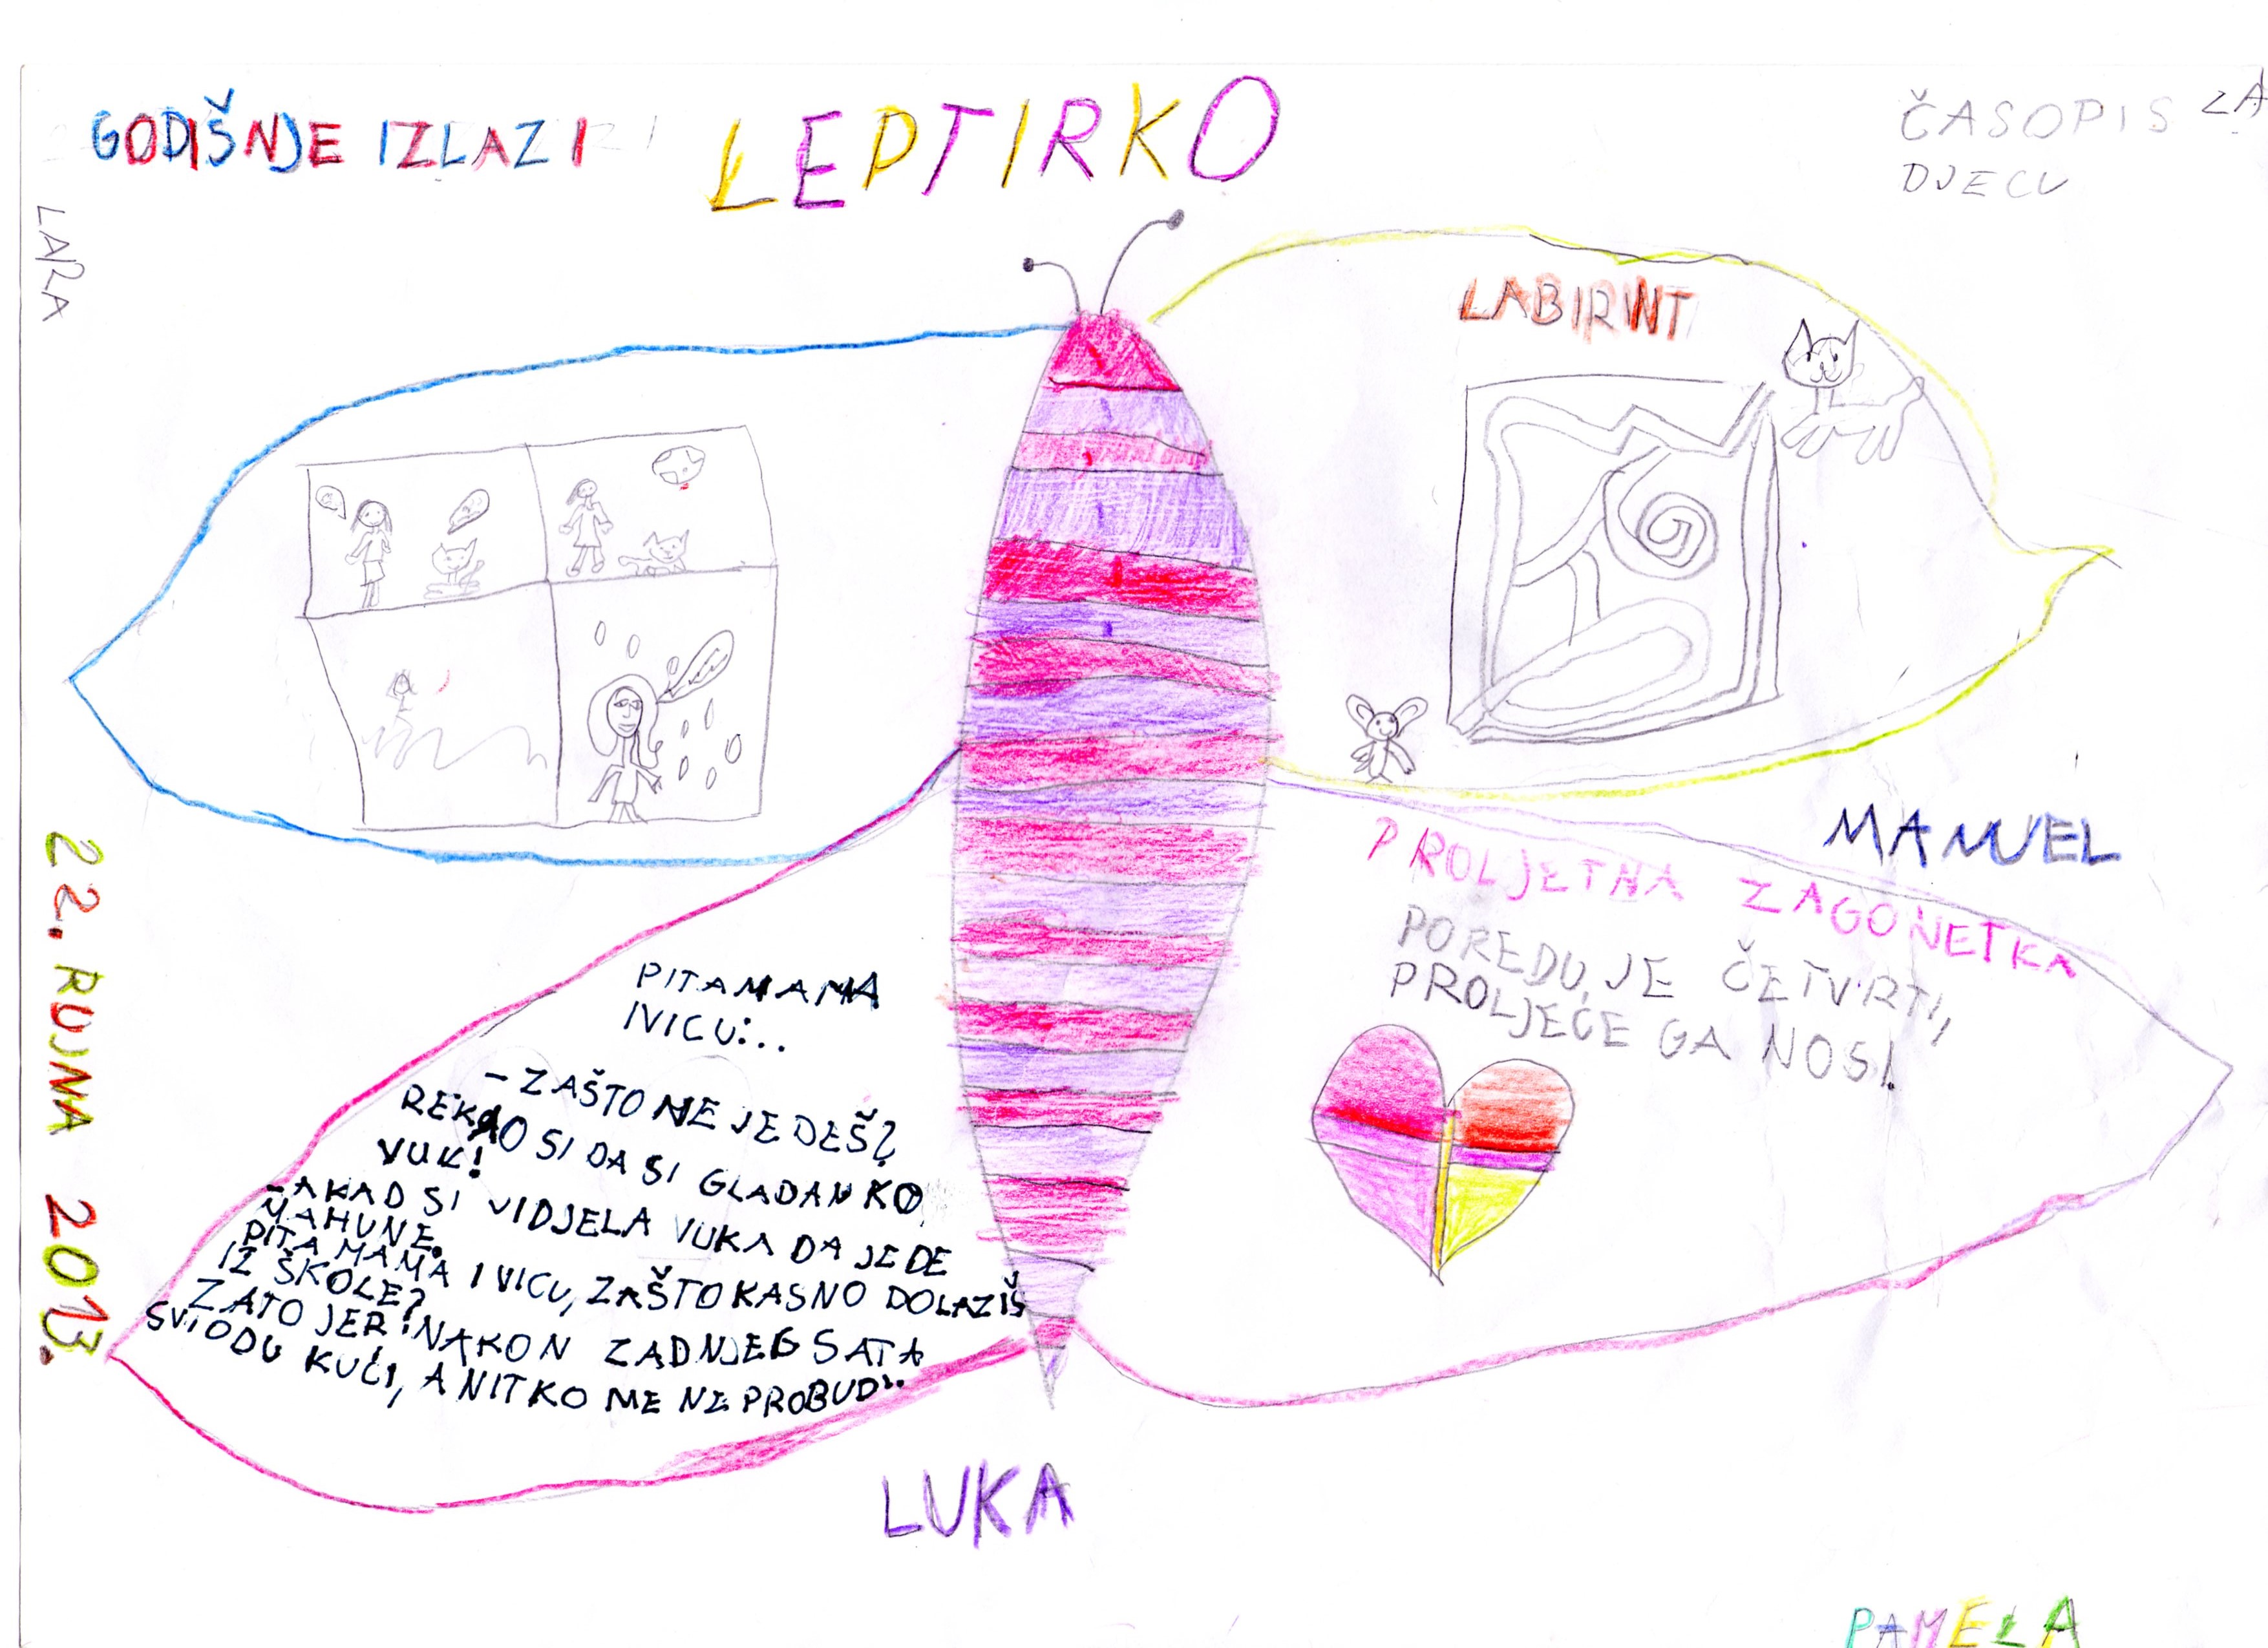 GODIŠNJE IZLAZI
LEPTIRKO
ČASOPIS ZA
DJECU
LARA
LABIRINT
22. RUJNA 2013.
MANUEL
PROLJETNA ZAGONETKA
POREDU JE ČETVRTI,
PROLJEĆE GA NOSI.
PITA MAMA
IVICU:..
- ZAŠTO NE JEDEŠ?
REKAO SI DA SI GLADAN KO
VUK!
- A KAD SI VIDJELA VUKA DA JEDE
MAHUNE.
PITA MAMA IVICU, ZAŠTO KASNO DOLAZIŠ
IZ ŠKOLE?
ZATO JER NAKON ZADNJEG SATA
SVI ODU KUĆI, A NITKO ME NE PROBUDI.
LUKA
PAMELA